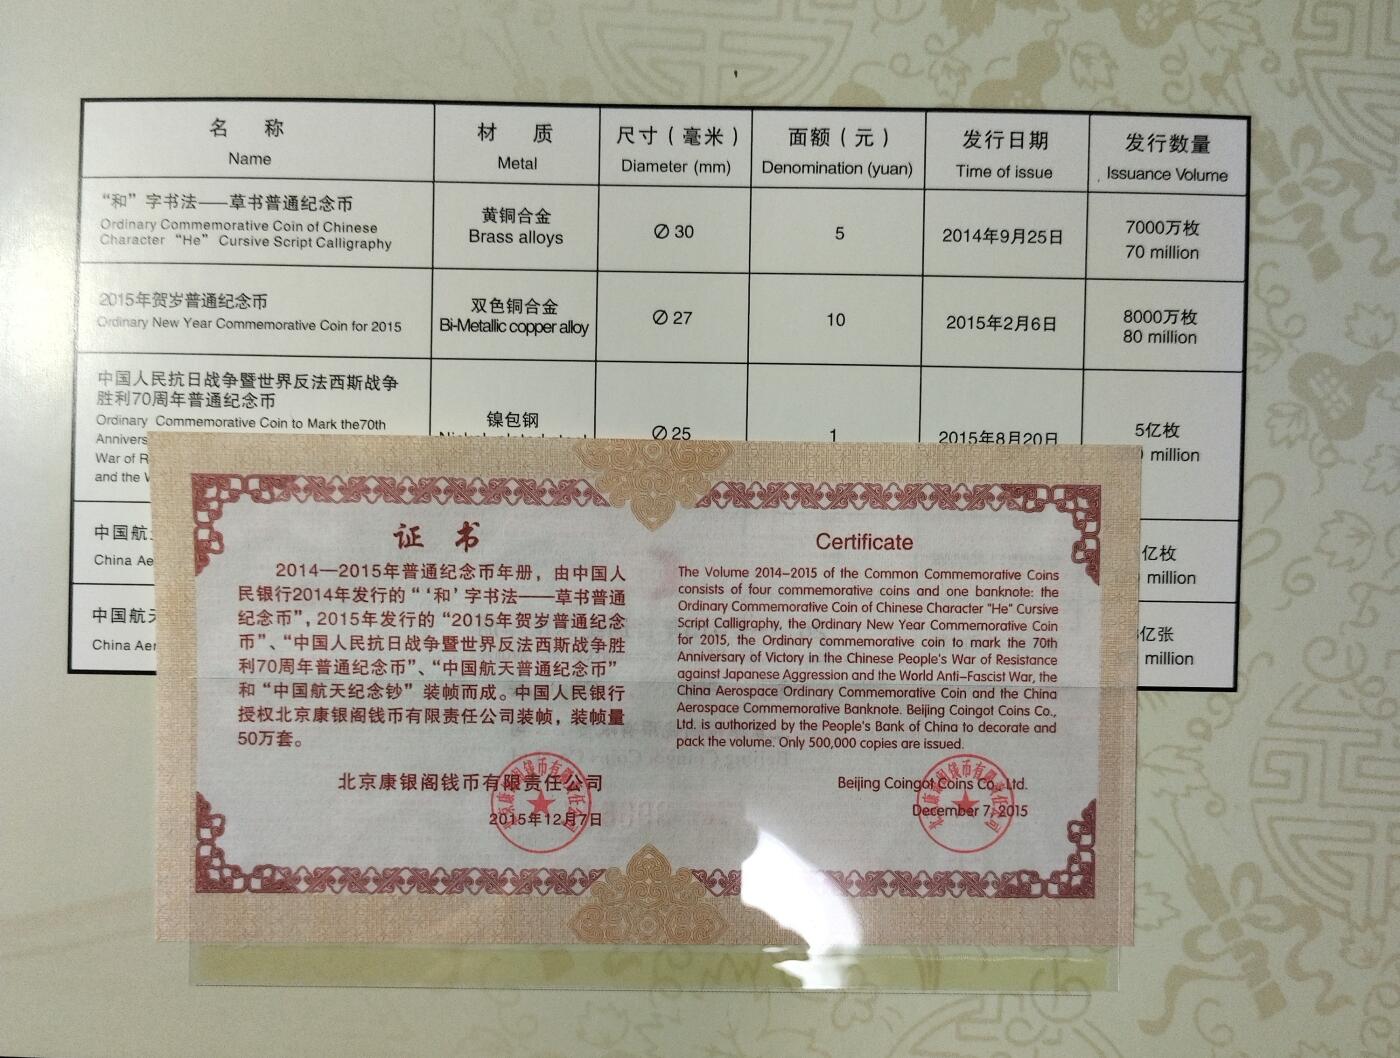 名 称
Name
材 质
Metal
尺寸(毫米)
Diameter (mm)
面额(元)
Denomination (yuan)
发行日期
Time of issue
发行数量
Issuance Volume
“和”字书法——草书普通纪念币
Ordinary Commemorative Coin of Chinese
Character “He” Cursive Script Calligraphy
黄铜合金
Brass alloys
∅ 30
5
2014年9月25日
7000万枚
70 million
2015年贺岁普通纪念币
Ordinary New Year Commemorative Coin for 2015
双色铜合金
Bi-Metallic copper alloy
∅ 27
10
2015年2月6日
8000万枚
80 million
中国人民抗日战争暨世界反法西斯战争
胜利70周年普通纪念币
Ordinary Commemorative Coin to Mark the70th
Annivers
War of R
and the W
镍包钢
∅ 25
1
2015年8月20日
5亿枚
million
中国航
China Ae
亿枚
million
中国航天
China Aer
亿张
million
证书
2014—2015年普通纪念币年册，由中国人
民银行2014年发行的“‘和’字书法——草书普通
纪念币”，2015年发行的“2015年贺岁普通纪念
币”、“中国人民抗日战争暨世界反法西斯战争胜
利70周年普通纪念币”、“中国航天普通纪念币”
和“中国航天纪念钞”装帧而成。中国人民银行
授权北京康银阁钱币有限责任公司装帧，装帧量
50万套。
北京康银阁钱币有限责任公司
2015年12月7日
Certificate
The Volume 2014–2015 of the Common Commemorative Coins
consists of four commemorative coins and one banknote: the
Ordinary Commemorative Coin of Chinese Character "He" Cursive
Script Calligraphy, the Ordinary New Year Commemorative Coin
for 2015, the Ordinary commemorative coin to mark the 70th
Anniversary of Victory in the Chinese People's War of Resistance
against Japanese Aggression and the World Anti–Fascist War, the
China Aerospace Ordinary Commemorative Coin and the China
Aerospace Commemorative Banknote. Beijing Coingot Coins Co.,
Ltd. is authorized by the People's Bank of China to decorate and
pack the volume. Only 500,000 copies are issued.
Beijing Coingot Coins Co., Ltd.
December 7, 2015